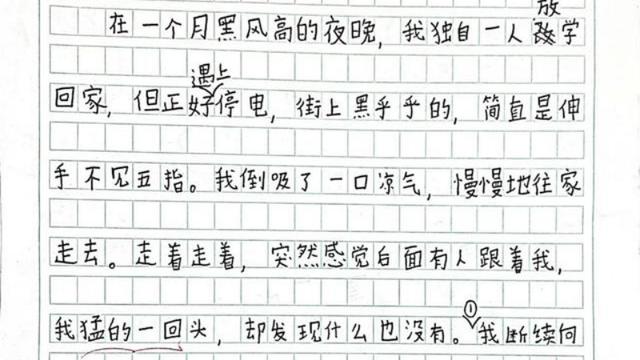 在一个月黑风高的夜晚，我独自一人放学
回家，但正好遇上停电，街上黑乎乎的，简直是伸
手不见五指。我倒吸了一口凉气，慢慢地往家
走去。走着走着，突然感觉后面有人跟着我，
我猛的一回头，却发现什么也没有。①我断续向